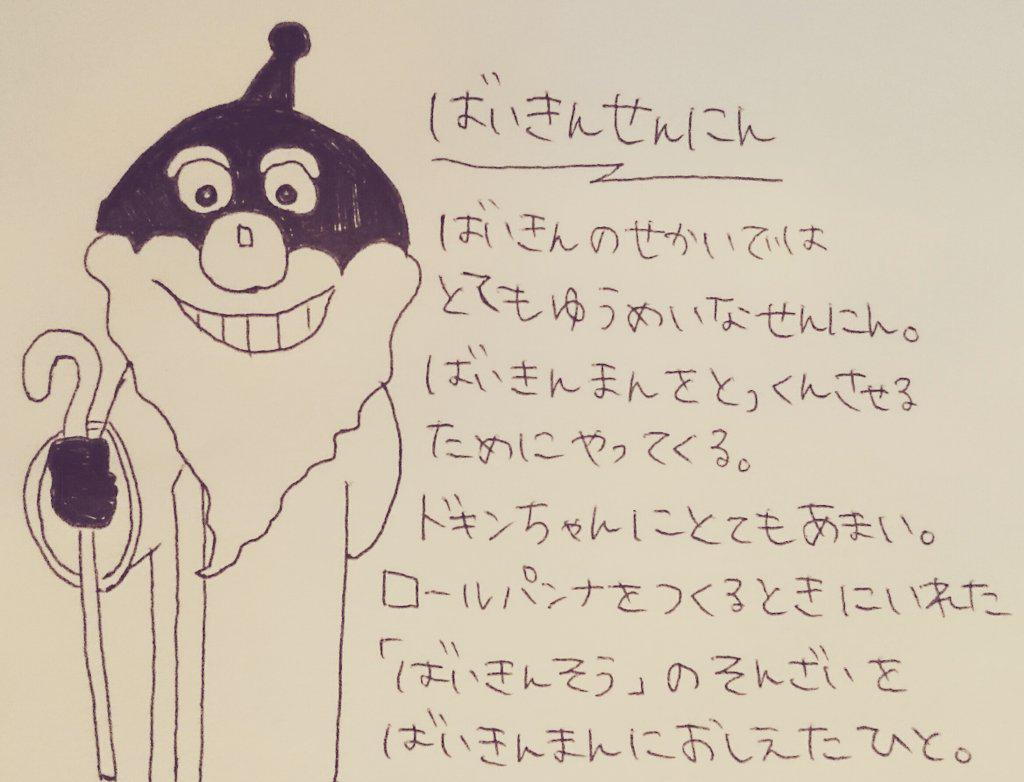 ばいきんせんにん
ばいきんのせかいでは
とてもゆうめいなせんにん。
ばいきんまんをとっくんさせる
ためにやってくる。
ドキンちゃんにとてもあまい。
ロールパンナをつくるときにいれた
「ばいきんそう」のそんざいを
ばいきんまんにおしえたひと。